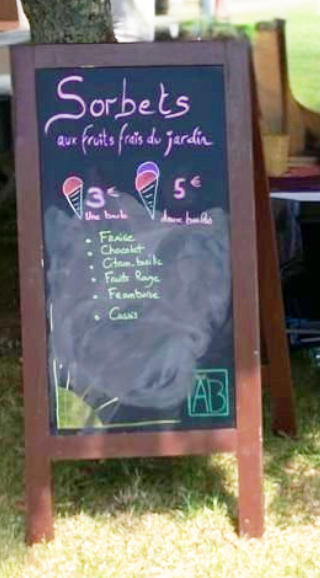 Sorbets
aux fruits frais du jardin
3€ 5€
Une boule deux boules
• Fraise
• Chocolat
• Citron basilic
• Fruits Rouge
• Framboise
• Cassis
AB